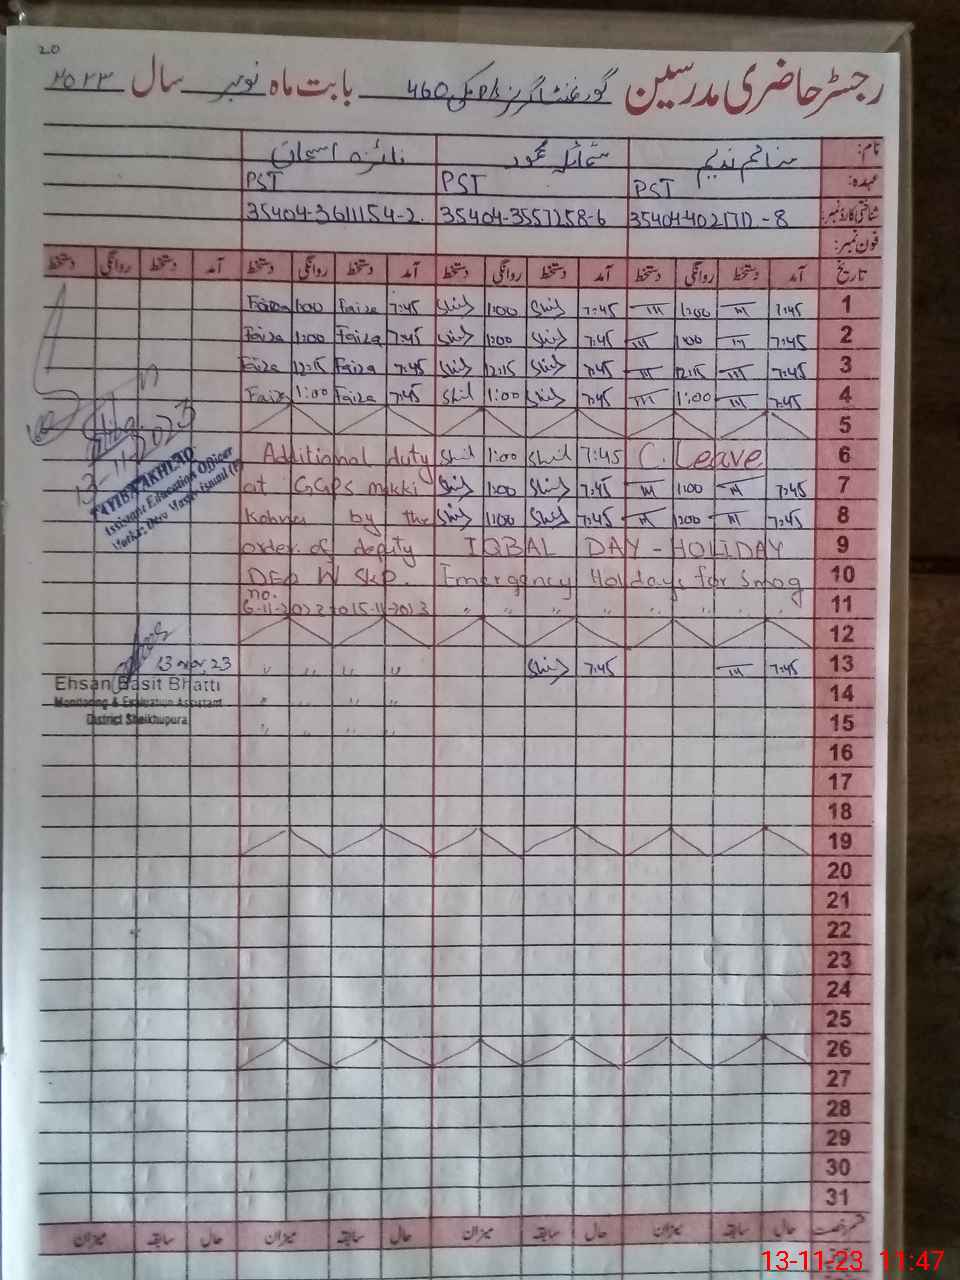 20
رجسٹر حاضری مدرسین گورنمنٹ گرلز بابت ماہ نومبر سال ۲۰۲۳
نام: صائم ندیم شمائلہ محمود فائزہ
عہدہ: PST PST PST
شناختی کارڈ نمبر: 35404-3557258-6 35404-3611154-2
فون نمبر:
تاریخ آمد دستخط روانگی دستخط آمد دستخط روانگی دستخط آمد دستخط روانگی دستخط آمد دستخط روانگی دستخط
Faiza 1:00 Faiza 7:45 1:00 7:45 1:00 7:45 1
Faiza 1:00 Faiza 7:45 1:00 7:45 1:00 7:45 2
Faiza 12:15 Faiza 7:45 12:15 7:45 12:15 7:45 3
Faiza 1:00 Faiza 7:45 1:00 7:45 1:00 7:45 4
5
Additional duty 1:00 7:45 C. Leave 6
at GGPS makki 1:00 7:45 1:00 7:45 7
Kohna by the 1:00 7:45 1:00 7:45 8
order of deputy IQBAL DAY - HOLIDAY 9
DEO W SKP. Emergency Holidays for Smog 10
no.
6-11-2023 to 15-11-2023 " " " " " " " " 11
12
13 nov, 23 " " " " 7:45 7:45 13
" " " " 14
" " " " 15
16
17
18
19
20
21
22
23
24
25
26
27
28
29
30
31
حال سابقہ میزان حال سابقہ میزان حال سابقہ میزان حال سابقہ میزان
13-11-2023
TAYYIBA AKHLAQ
Assistant Education Officer
Ehsan Basit Bhatti
Monitoring & Evaluation Assistant
District Sheikhupura
13-11-23 11:47